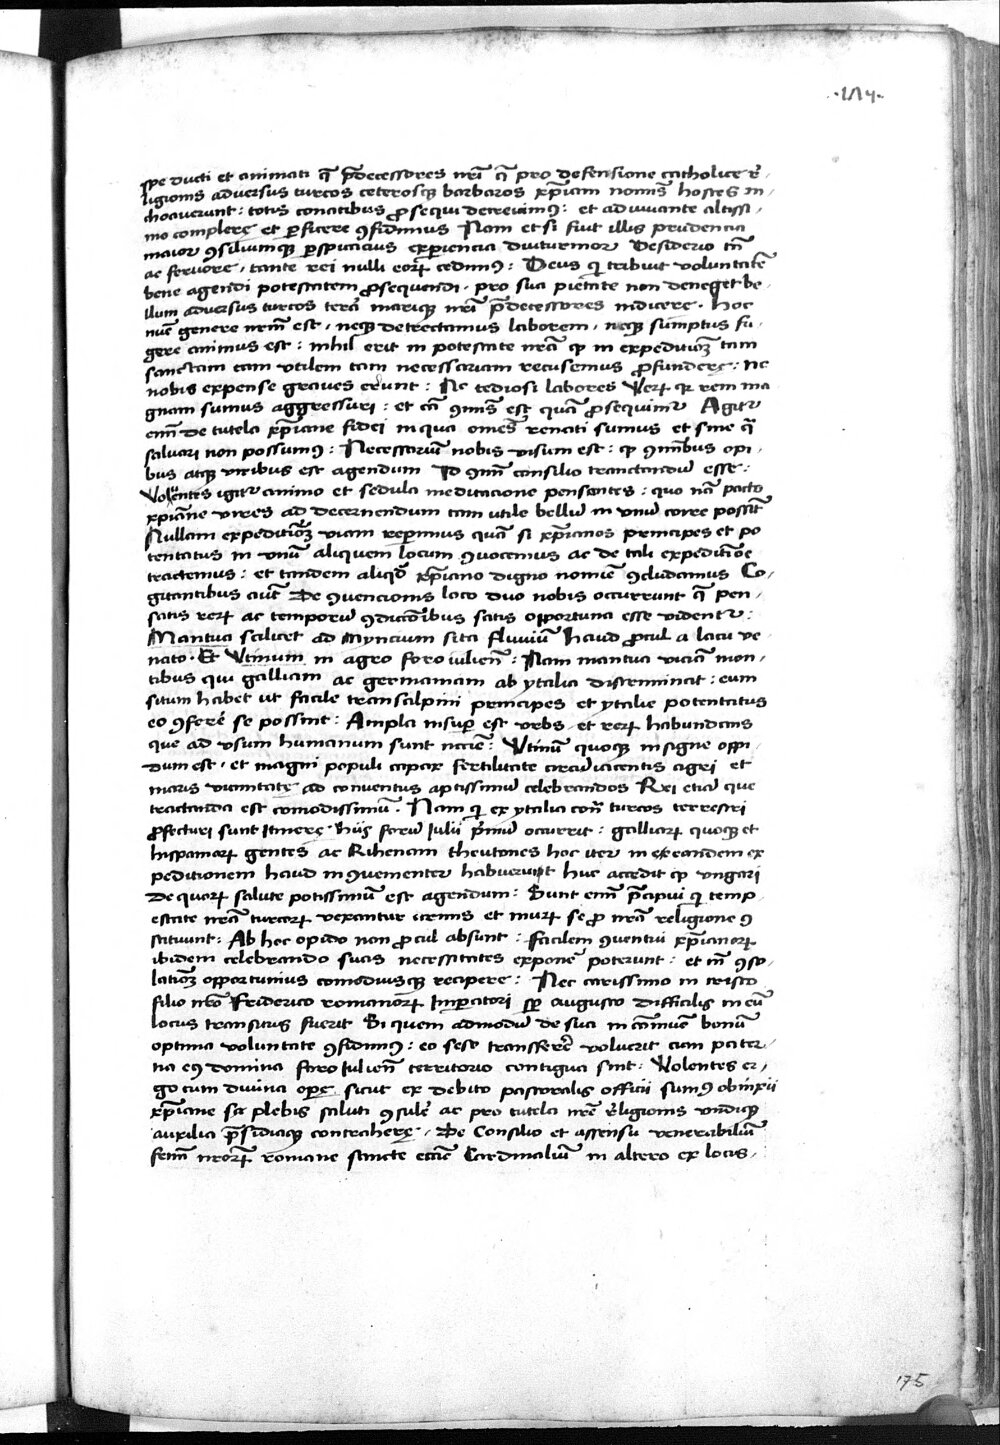 ·174·
spe ducti et animati q̄ p̄decessores nrī q̄ pro defensione catholice rͤ,
ligionis adversus turcos ceterosqꝫ barbaros xp̄iani nominis hostes in
choaverunt : totis conatibus ꝓsequi decrevimꝰ : et adiuvante altissi,
mo complere et perficere ꝯfidimus Nam et si fiut illis prudencia
maior ꝯsiliumqꝫ perspicacius experiencia diuturnior Desiderio tn̄
ac fervore, tante rei nulli eorꝝ cedimꝰ : Deus qui tribuit voluntatē
bene agendi potestatem ꝓsequendi . pro sua pietate non deneget be,
llum adversus turcos terra mariqꝫ nrī p̄decessores indicere . hoc
nūc genere nrm̄ est, neqꝫ detrectamus laborem, neqꝫ sumptus fu,
gere animus est : nihil erit in potestate nrā qꝫ in expeditiōꝫ tam
sanctam tam utilem tam necessariam recusemus ꝓfundere : nec
nobis expense graves erunt : Nec tediosi labores Verꝫ qꝛ rem ma
gnam sumus aggressuri : et cā ꝯmūis est quā ꝓsequimur Agitur
enī de tutela xp̄iane fidei in qua omēs renati sumus et sine qua
salvari non possumꝰ : Necessariū nobis visum est : qꝫ omībus opi,
bus atqꝫ viribus est agendum Id ꝯmūi consilio tractandū esse :
Volentes igitur animo et sedula meditacione pensantes : quo nā pacto
xp̄iane vires ad decernendum tam utile bellū in unū coire possēt
Nullam expeditiorē viam reperimus quā si xp̄ianos principes et po
tentatus in unū aliquem locum ꝯvocemus ac de tali expeditiōe
tractemus : et tandem aliqd̄ xp̄iano digno nomīe ꝯcludamus Co,
gitantibus autē De ꝯvencionis loco duo nobis occurrunt q̄ pen,
satis rerꝝ ac temporū ꝯdicōibus satis opportuna esse videntur :
Mantua scilicet ad Myncium sita fluviū haud ꝓcul a lacu ve
nato . Et Vtinum in agro foro iulien̄ : Nam mantua viciā mon,
tibus qui galliam ac germaniam ab ytalia discriminat : eum
situm habet ut facile transalpini principes et ytalie potentatus
eo ꝯferre se possint : Ampla insuper est urbs . et rerꝝ habundans
que ad usum humanum sunt necīe : Vtinū quoqꝫ insigne oppi,
dum est, et magni populi capax fertilitate circuiacentis agri et
maris vicinitate ad conventus aptissimū celebrandos Rei etiā que
tractanda est comodissimū . Nam qui ex ytalia cont̄ turcos terrestri
ꝓfecturi sunt Itinere hiis forū Iulii primū occurrit : galliarꝝ quoqꝫ et
hispaniarꝝ gentes ac Rihenani theutones hoc iter in ex eandem ex
peditionem haud in ꝯvementer habuerunt huc accedit qꝫ ungari
de quorꝝ salute potissimū est agendum : Sunt enī p̄cipui qui temp
estate nrā turcorꝝ vexantur armis et murꝫ se ꝓ nrā religione ꝯ
stituunt : Ab hoc opido non ꝓcul absunt : facilem ꝯventui xp̄ianorꝝ
ibidem celebrando suas necessitates exponere poterunt : et in ꝯso,
latiōꝫ opportunius comodiusqꝫ recipere : Nec carissimo in cristo
filio nrō Friderico romanorꝝ Imperatori sp̄ augusto difficilis in eū
locus transitus fuerit Si quem admodū de sua in cōmūe bonū
optima voluntate ꝯfidimꝰ : eo sese transferre voluerit cum pater,
na eiꝰ dominia foro Iulien̄ territorio contigua sint : Volentes er,
go cum divina ope sicut ex debito pastoralis officii sumꝰ obnixii
xp̄iane scꝫ plebis saluti ꝯsulere ac pro tutela nrē religionis undiqꝫ
auxilia p̄sidiaqꝫ contrahere, De Consilio et assensu venerabiliū
frm̄ nrorꝝ romane sancte eccīe Cardinaliū in altero ex locis,
175